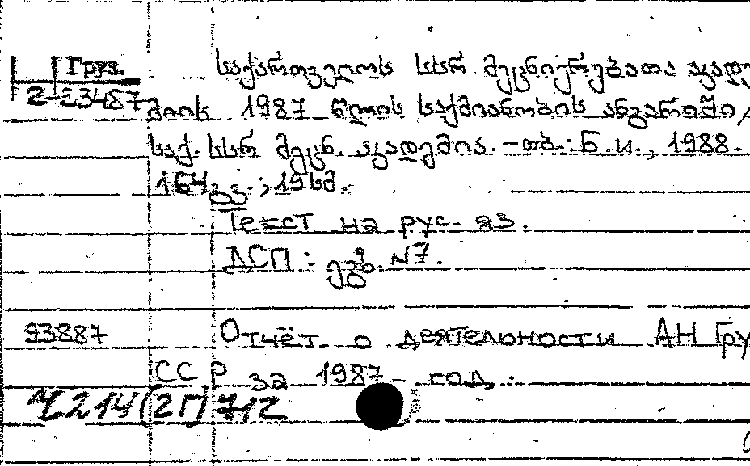 Груз. საქართველოს სსრ მეცნიერებათა აკადე
2-23487 მიის 1987 წლის საქმიანობის ანგარიში /
საქ. სსრ მეცნ. აკადემია. - თბ.: Б. и., 1988. -
164 გვ.; 19 სმ.
Текст на рус. яз.
ДСП: ეგზ. №7.
93887 Отчёт о деятельности АН Гру
ССР за 1987 год.
214(2Г)712